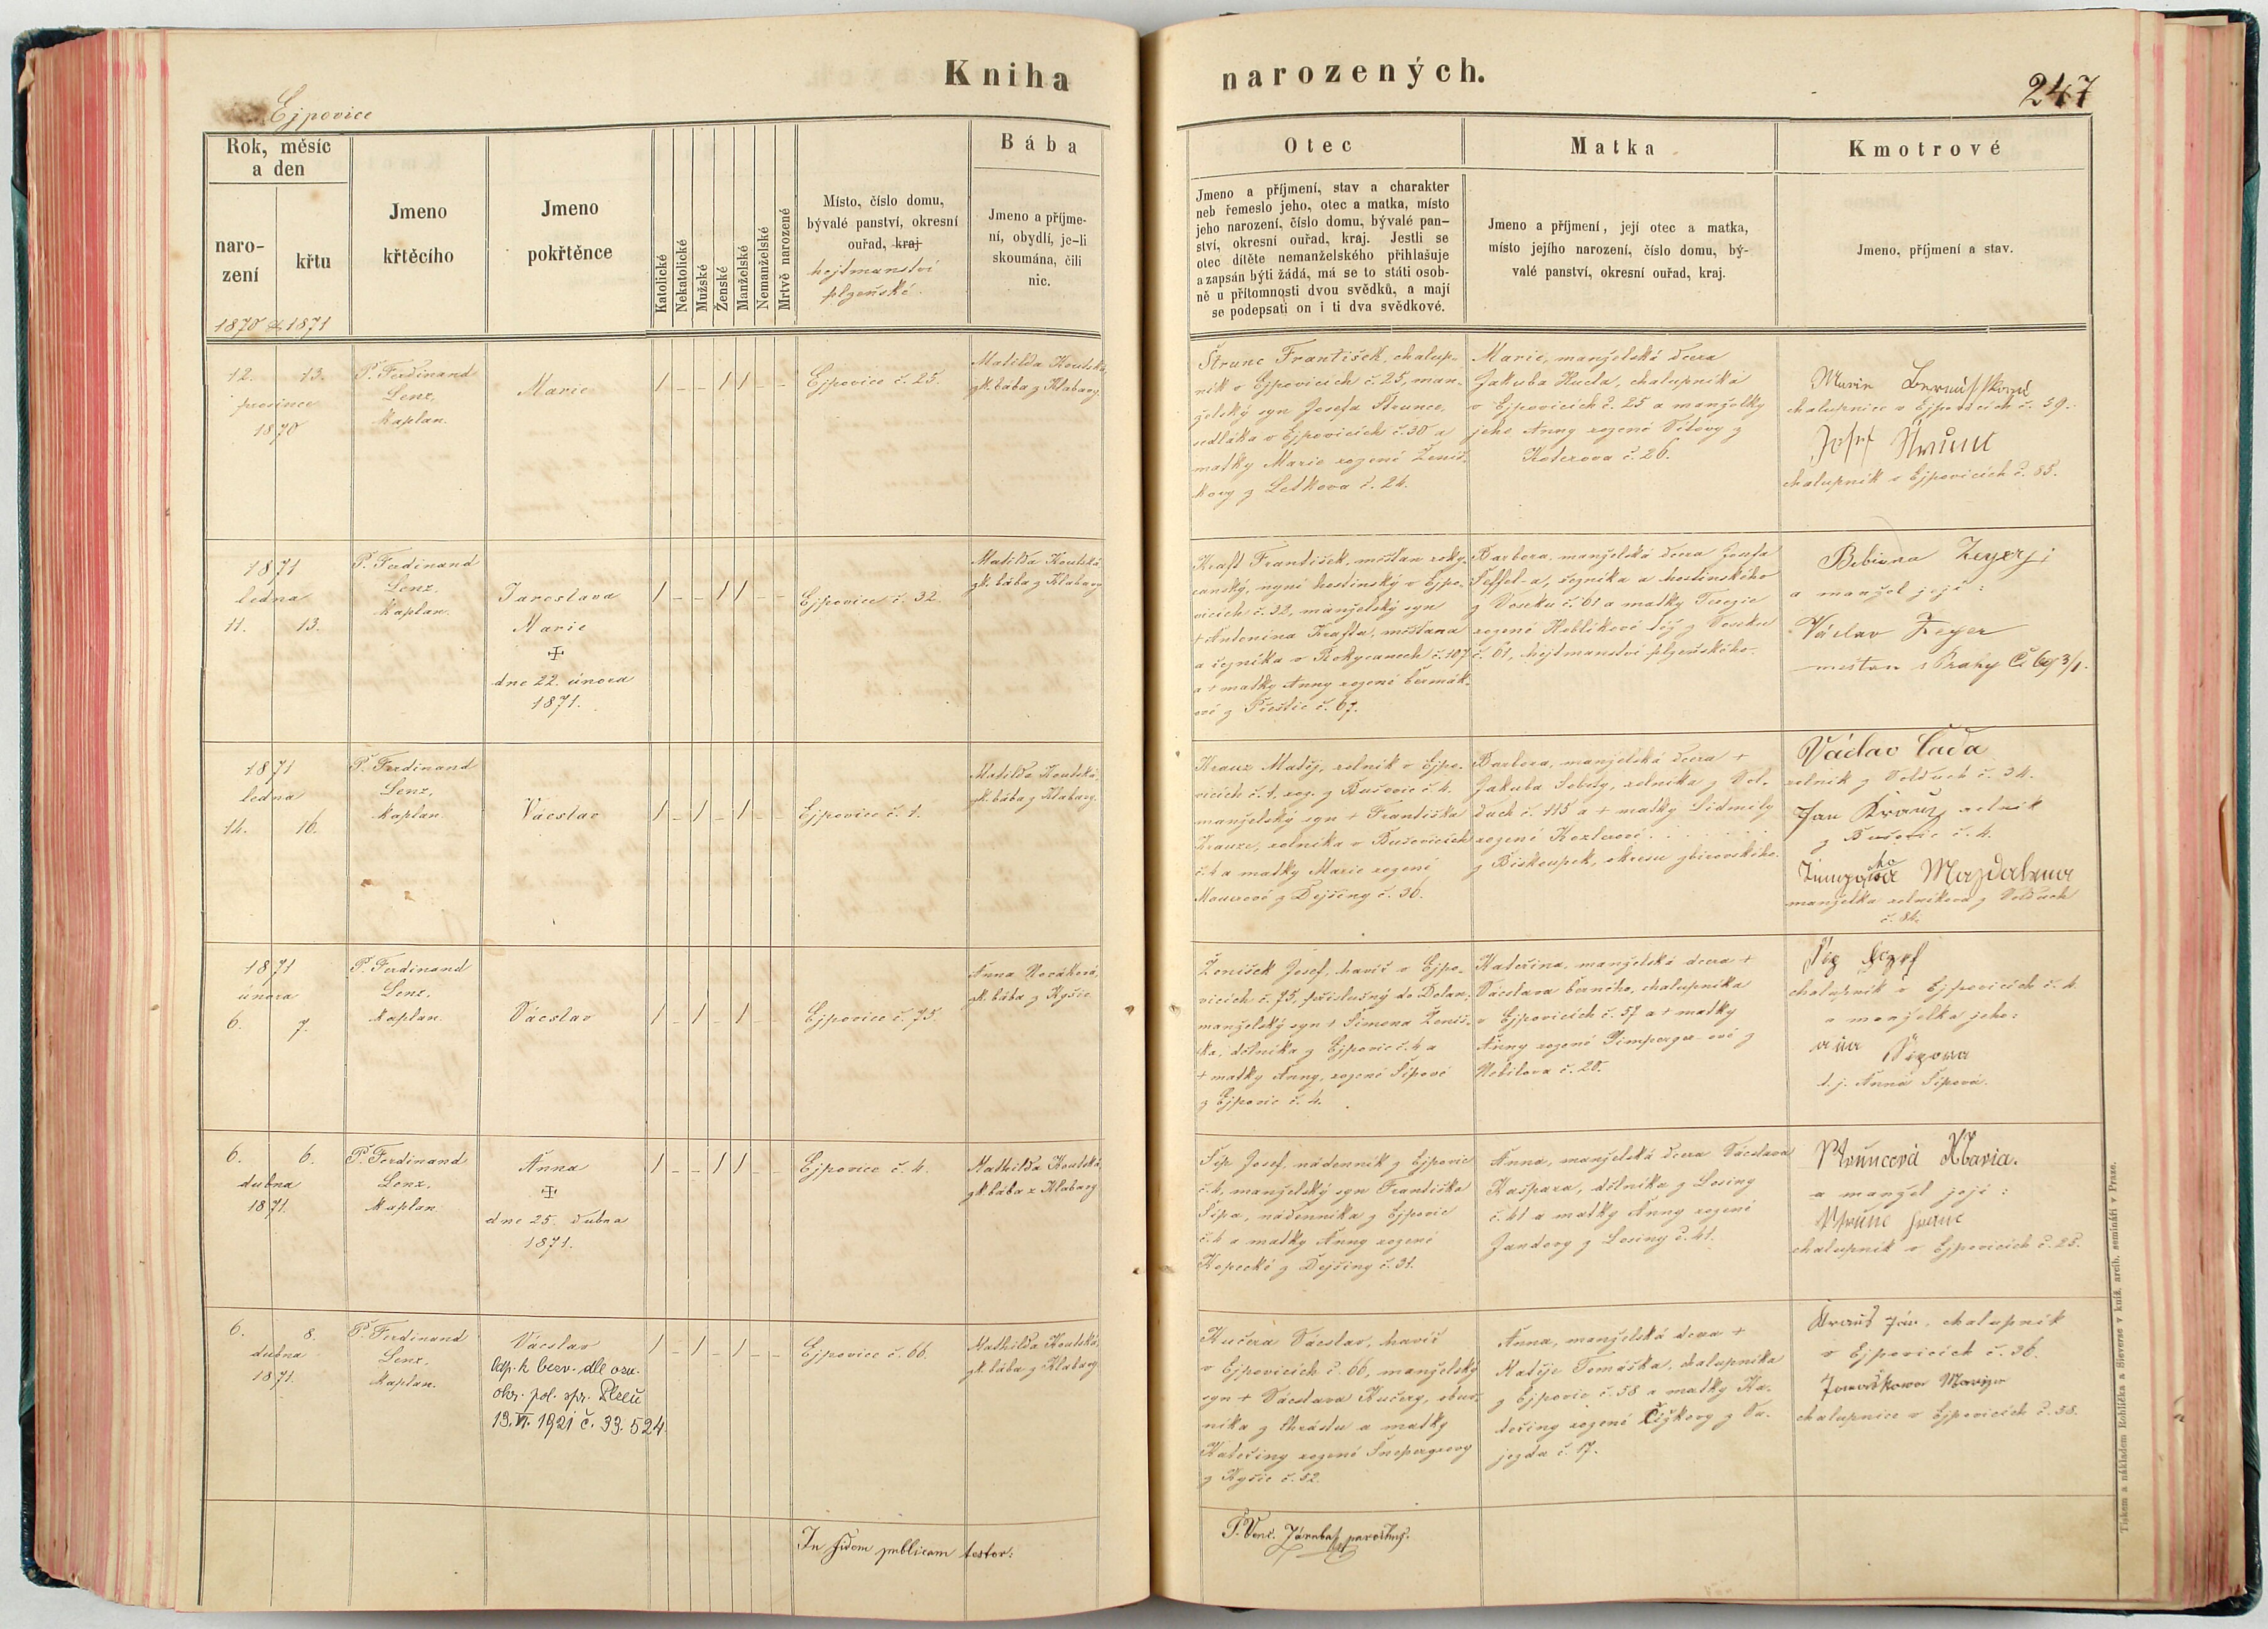 Kniha
narozených.
247
Ejpovice
Rok, měsíc
a den
naro-
zení
křtu
1870 & 1871
Jmeno
křtěcího
Jmeno
pokřtěnce
Katolické
Nekatolické
Mužské
Ženské
Manželské
Nemanželské
Mrtvě narozené
Místo, číslo domu,
bývalé panství, okresní
ouřad, kraj
hejtmanství
plzeňské.
Bába
Jmeno a příjme-
ní, obydlí, je-li
skoumána, čili
nic.
Otec
Jmeno a příjmení, stav a charakter
neb řemeslo jeho, otec a matka, místo
jeho narození, číslo domu, bývalé pan-
ství, okresní ouřad, kraj. Jestli se
otec dítěte nemanželského přihlašuje
a zapsán býti žádá, má se to státi osob-
ně u přítomnosti dvou svědků, a mají
se podepsati on i ti dva svědkové.
Matka
Jmeno a příjmení, její otec a matka,
místo jejího narození, číslo domu, bý-
valé panství, okresní ouřad, kraj.
Kmotrové
Jmeno, příjmení a stav.
12. 13.
prosince
1870
P. Ferdinand
Lenz,
kaplan.
Marie
Ejpovice č. 25.
Matilda Koutská,
zk. bába z Klabavy.
Štrunc František, chalup-
ník v Ejpovicích č. 25, man-
želský syn Josefa Štrunce,
sedláka v Ejpovicích č. 30 a
matky Marie rozené Ženíš-
kovy z Letkova č. 24.
Marie, manželská dcera
Jakuba Hucla, chalupníka
v Ejpovicích č. 25 a manželky
jeho Anny rozené Vítovy z
Koterova č. 26.
Marie
chalupnice v Ejpovicích č. 39.
Josef Štrunc
chalupník v Ejpovicích č. 85.
1871
ledna
11. 13.
P. Ferdinand
Lenz,
kaplan.
Jaroslava
Marie
✠
dne 22. února
1871.
Ejpovice č. 32.
Matilda Koutská,
zk. bába z Klabavy
Kraft František, měšťan roky-
canský, nyní hostinský v Ejpo-
vicích č. 32, manželský syn
+ Antonína Krafta, měšťana
a řezníka v Rokycanech č. 107
a + matky Anny rozené Čermák-
ové z Přeštic č. 67.
Barbora, manželská dcera Josefa
Šeffel-a, řezníka a hostinského
z Voseku č. 61 a matky Terezie
rozené Heblíkové též z Voseku
č. 61, hejtmanství plzeňského.
Bibiana Zeyer;
a manžel její:
Václav Zeyer
měšťan z Prahy
1871
ledna
14. 16.
P. Ferdinand
Lenz,
kaplan
Vácslav
Ejpovice č. 1.
Matilda Koutská,
zk. bába z Klabavy.
Krauz Matěj, rolník v Ejpo-
vicích č. 1, roz. z Bušovic č. 4.
manželský syn + Františka
Krauze, rolníka v Bušovicích
č. 4 a matky Marie rozené
Maurové z Dejšiny č. 36.
Barbora, manželská dcera +
Jakuba Sebity, rolníka z Vol-
duch č. 115 a + matky Lidmily
rozené Kozlerové
z Biskoupek, okresu zbirovského.
Václav Lada
rolník z Volduch č. 34.
Jan Krauz, rolník
z Bušovic č. 4.
Magdalena
manželka rolníkova z Volduch
č. 84.
1871
února
6. 7.
P. Ferdinand
Lenz,
kaplan.
Vácslav
Ejpovice č. 75.
Anna Nováková,
zk. bába z Kyšic.
Ženíšek Josef, havíř v Ejpo-
vicích č. 75, příslušný do Dolan,
manželský syn + Šimona Ženíš-
ka, dělníka z Ejpovic č. 4 a
+ matky Anny, rozené Šípové
z Ejpovic č. 4.
Kateřina, manželská dcera +
Vácslava Černého, chalupníka
v Ejpovicích č. 57 a + matky
Anny rozené Gimperger-ové z
Nebílova č. 20.
Šíp Jozef
chalupník v Ejpovicích č. 4.
a manželka jeho:
ana Šipova
t. j. Anna Šípová.
6. 6.
dubna
1871.
P. Ferdinand
Lenz,
kaplan
Anna
✠
dne 25. dubna
1871.
Ejpovice č. 4.
Mathilda Koutská,
zk. bába z Klabavy
Šíp Josef, nádenník z Ejpovic
č. 4, manželský syn Františka
Šípa, nádenníka z Ejpovic
č. 4 a matky Anny rozené
Kopecké z Dejšiny č. 31.
Anna, manželská dcera Vácslava
Kašpara, dělníka z Losiny
č. 41 a matky Anny rozené
Jandovy z Losiny č. 41.
Štruncová Maria.
a manžel její:
Štrunc Franc
chalupník v Ejpovicích č. 25.
6. 8.
dubna
1871.
P. Ferdinand
Lenz,
kaplan.
Vácslav
Odp. k bezv. dle ozn.
okr. pol. spr. Plzeň
13. VI. 1921 č. 33.524.
Ejpovice č. 66.
Mathilda Koutská,
zk. bába z Klabavy
Kučera Vácslav, havíř
v Ejpovicích č. 66, manželský
syn + Vácslava Kučery, obuv-
níka z Chrástu a matky
Kateřiny rozené Šnepergrovy
z Kyšic č. 52.
Anna, manželská dcera +
Matěje Tomáška, chalupníka
z Ejpovic č. 58 a matky Ka-
teřiny rozené Čížkovy z Vá-
jezda č. 17.
Kraus Jan, chalupník
v Ejpovicích č. 36.
chalupnice v Ejpovicích č. 58.
In fidem publicam testor:
P. Venc. parochus.
Tiskem a nákladem Rohlíčka a Sieverse v kníž. arcib. semináři v Praze.